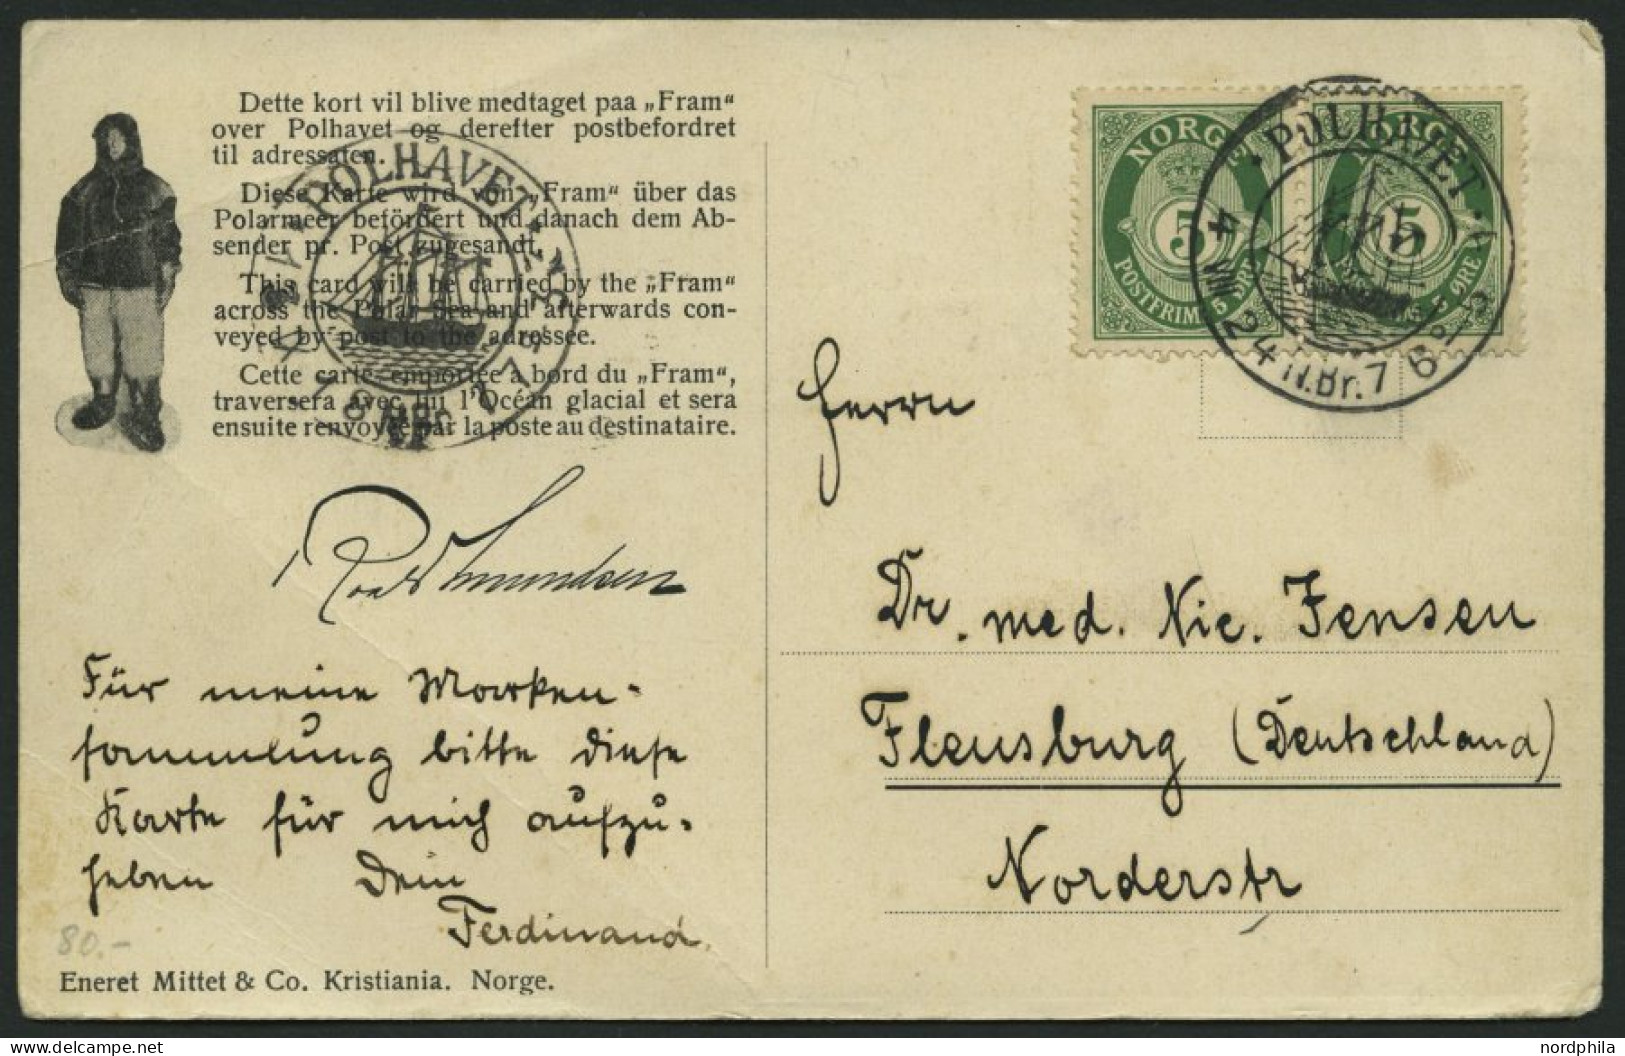 Dette kort vil blive medtaget paa „Fram“
over Polhavet og derefter postbefordret
til adressaten.
Diese Karte wird von „Fram“ über das
Polarmeer befördert und danach dem Ab-
sender pr. Post zugesandt.
This card will be carried by the „Fram“
across the Polar Sea and afterwards con-
veyed by post to the adressee.
Cette carte, emportée à bord du „Fram“,
traversera avec lui l'Océan glacial et sera
ensuite renvoyée par la poste au destinataire.
POLHAVET
Roald Amundsen
Für meine Marken-
sammlung bitte diese
Karte für mich aufzu-
heben Dein
Ferdinand.
80.-
Eneret Mittet & Co. Kristiania. Norge.
NORGE NORGE
5 5
POSTFRIM 5 ØRE
POLHAVET
4 VII 24 N.Br.7
Herrn
Dr. med. Nic. Jensen
Flensburg (Deutschland)
Norderstr
nordphila